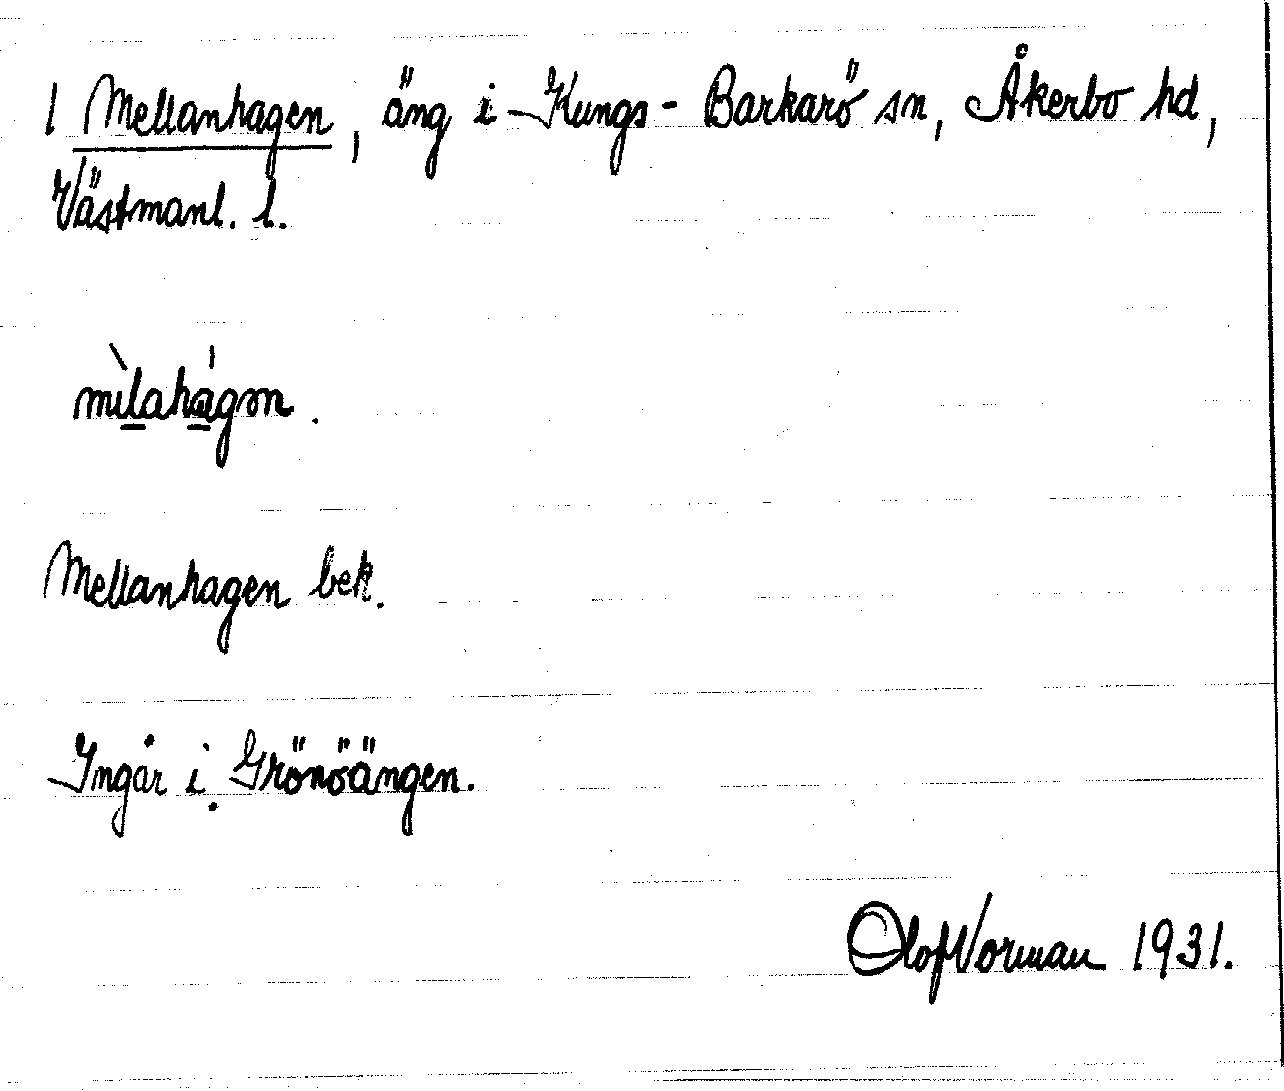 1 Mellanhagen, äng i Kungs-Barkarö sn, Åkerbo hd,
Västmanl. l.
mìlahágən.
Mellanhagen bek.
Ingår i Grönöängen.
Olof Norman 1931.